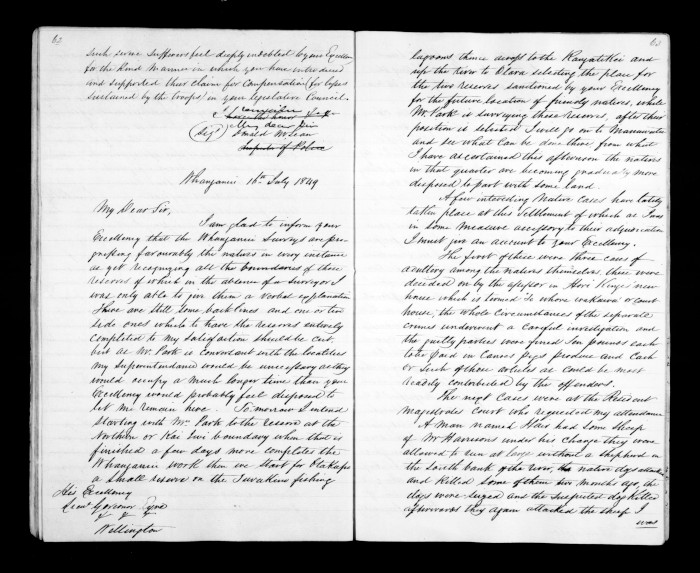 62
such severe sufferers feel deeply indebted by your Excellen
for the kind manner in which you have introduced
and supported their claim for Compensation (for losses
sustained by the troops) in your legislative Council.
I remain &c
have the honor &c
My dear Sir
(Sigd) Donald McLean
Inspector of Police
Whanganui 16th July 1849
My Dear Sir,
I am glad to inform your
Excellency that the Whanganui Surveys are pro-
gressing favourably the natives in every instance
as yet recognizing all the boundaries of those
reserves of which in the absence of a Surveyor I
was only able to give them a verbal explanation
There are still some back lines and one or two
side ones which to have the reserves entirely
completed to my satisfaction should be cut,
but as Mr. Park is conversant with the localities
my Superintendance would be unnecessary as they
would occupy a much longer time than your
Excellency would probably feel disposed to
let me remain here. To morrow I intend
starting with Mr. Park to the reserve at the
Northern or Kai Iwi boundary when that is
finished a few days more completes the
Whanganui work then we start for
a small reserve on the Turakina fishing
His Excellency
Lieut Governor Eyre
& & &
Wellington
63
lagoons thence across to the Rangitikei and
up the river to Parewa selecting the place for
the two reserves sanctioned by your Excellency
for the future location of friendly natives, while
Mr. Park is surveying those reserves, after their
position is selected I will go on to Manawatu
and see what can be done there, from what
I have ascertained this afternoon the natives
in that quarter are becoming gradually more
disposed to part with some land.
A few interesting Native cases have lately
taken place at this Settlement of which as I was
in some measure accessory to their adjudication
I must give an account to your Excellency.
The first of these were three cases of
adultery among the natives themselves, these were
decided on by the assessor in Hori Kingi's new
house which is termed Te whare whakawa or Court
house, the whole circumstances of the separate
crimes underwent a careful investigation and
the guilty parties were fined Ten pounds each
to be paid in Canoes Pigs produce and Cash
or such of those articles as could be most
readily contributed by the offenders.
The next cases were at the Resident
Magistrates Court who requested my attendance
A man named Hair had some Sheep
of Mr Harrisons under his charge they were
allowed to run at large without a shepherd on
the South bank of the river, the native dogs attack
and killed some of them two months ago, the
dogs were Seized and the suspected dog killed
afterwards they again attacked the sheep I
was